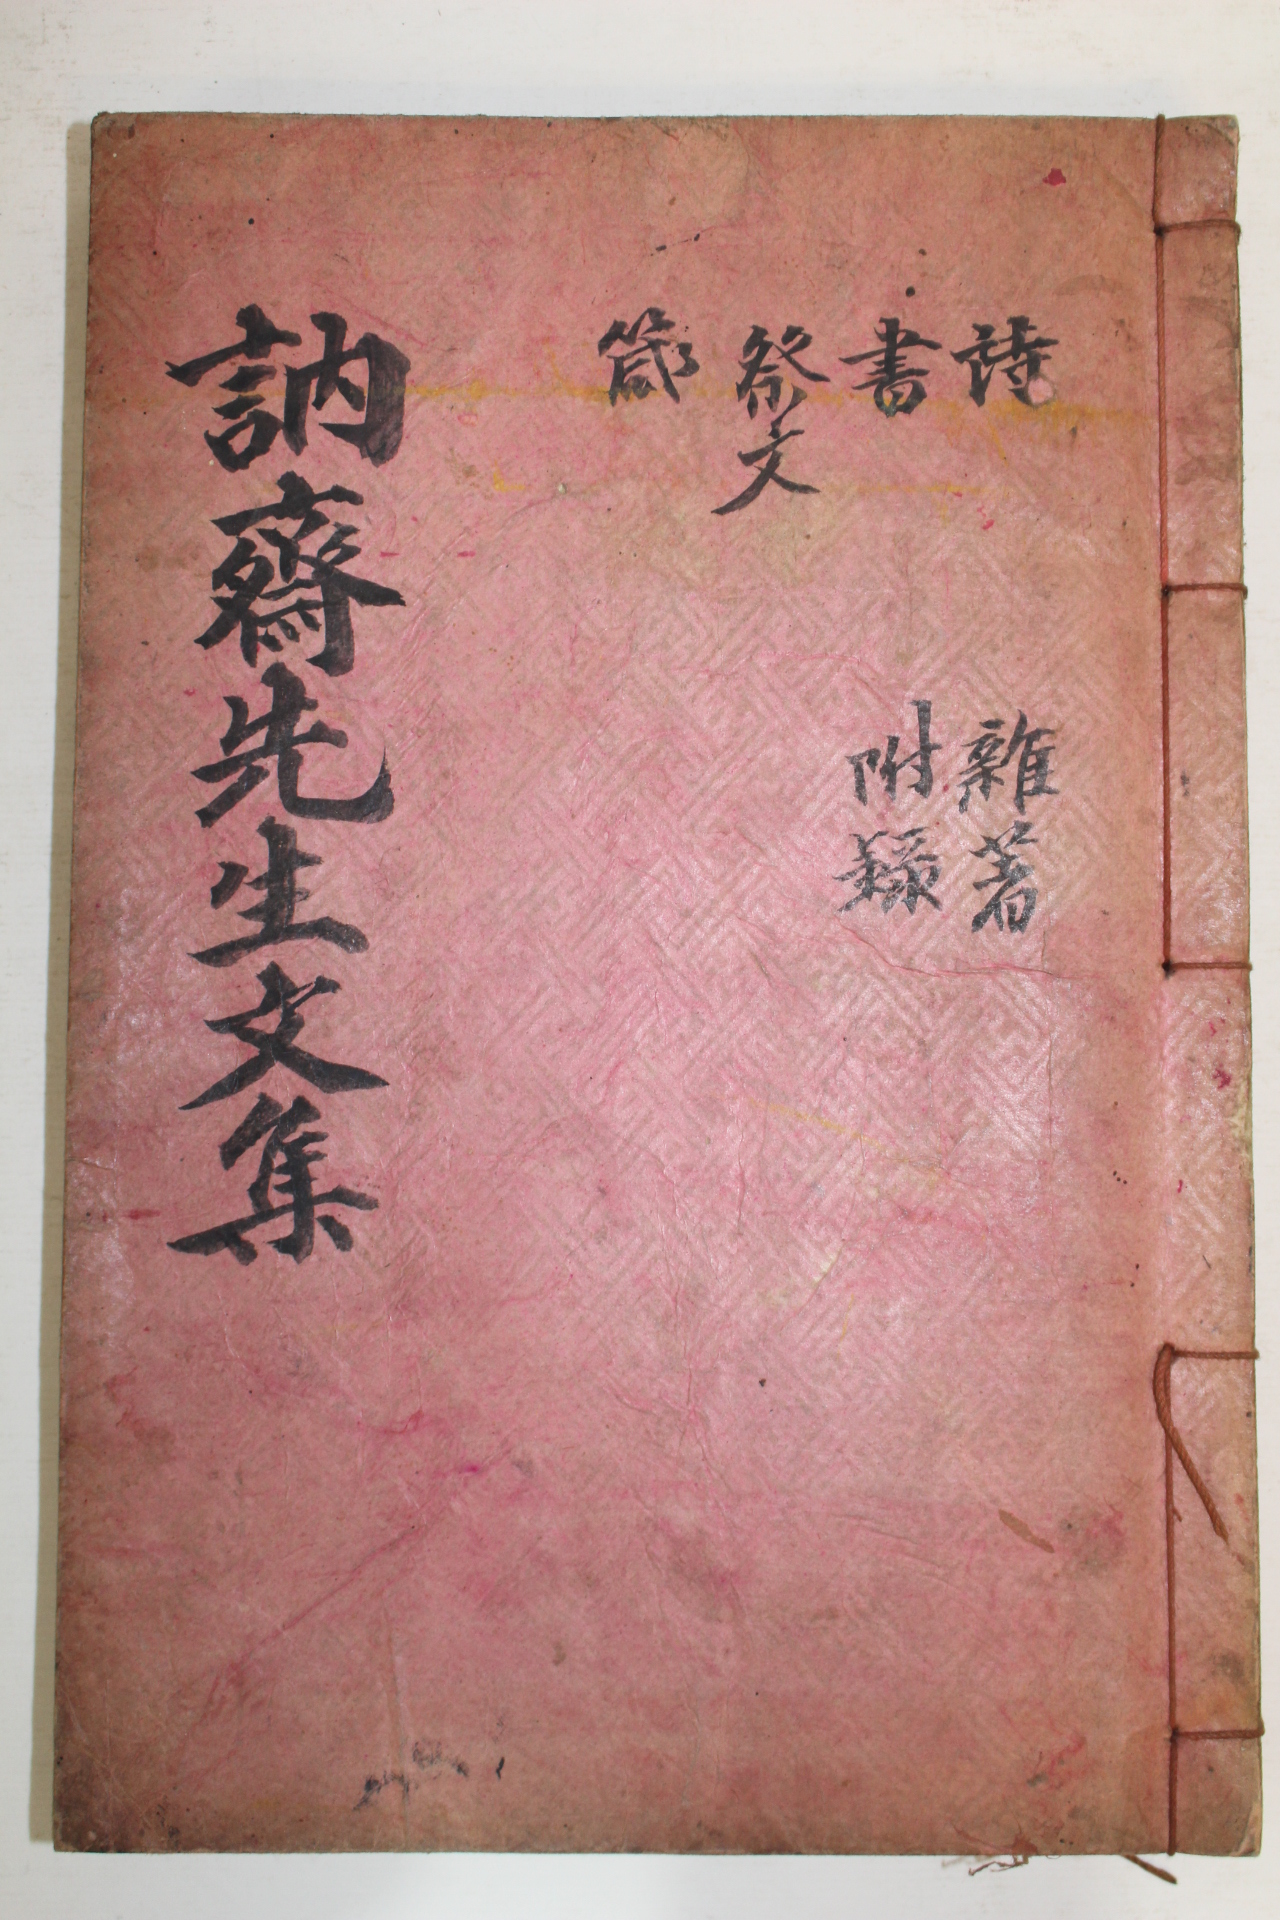 詩
書
祭文
箴
雜著
附錄
訥齋先生文集